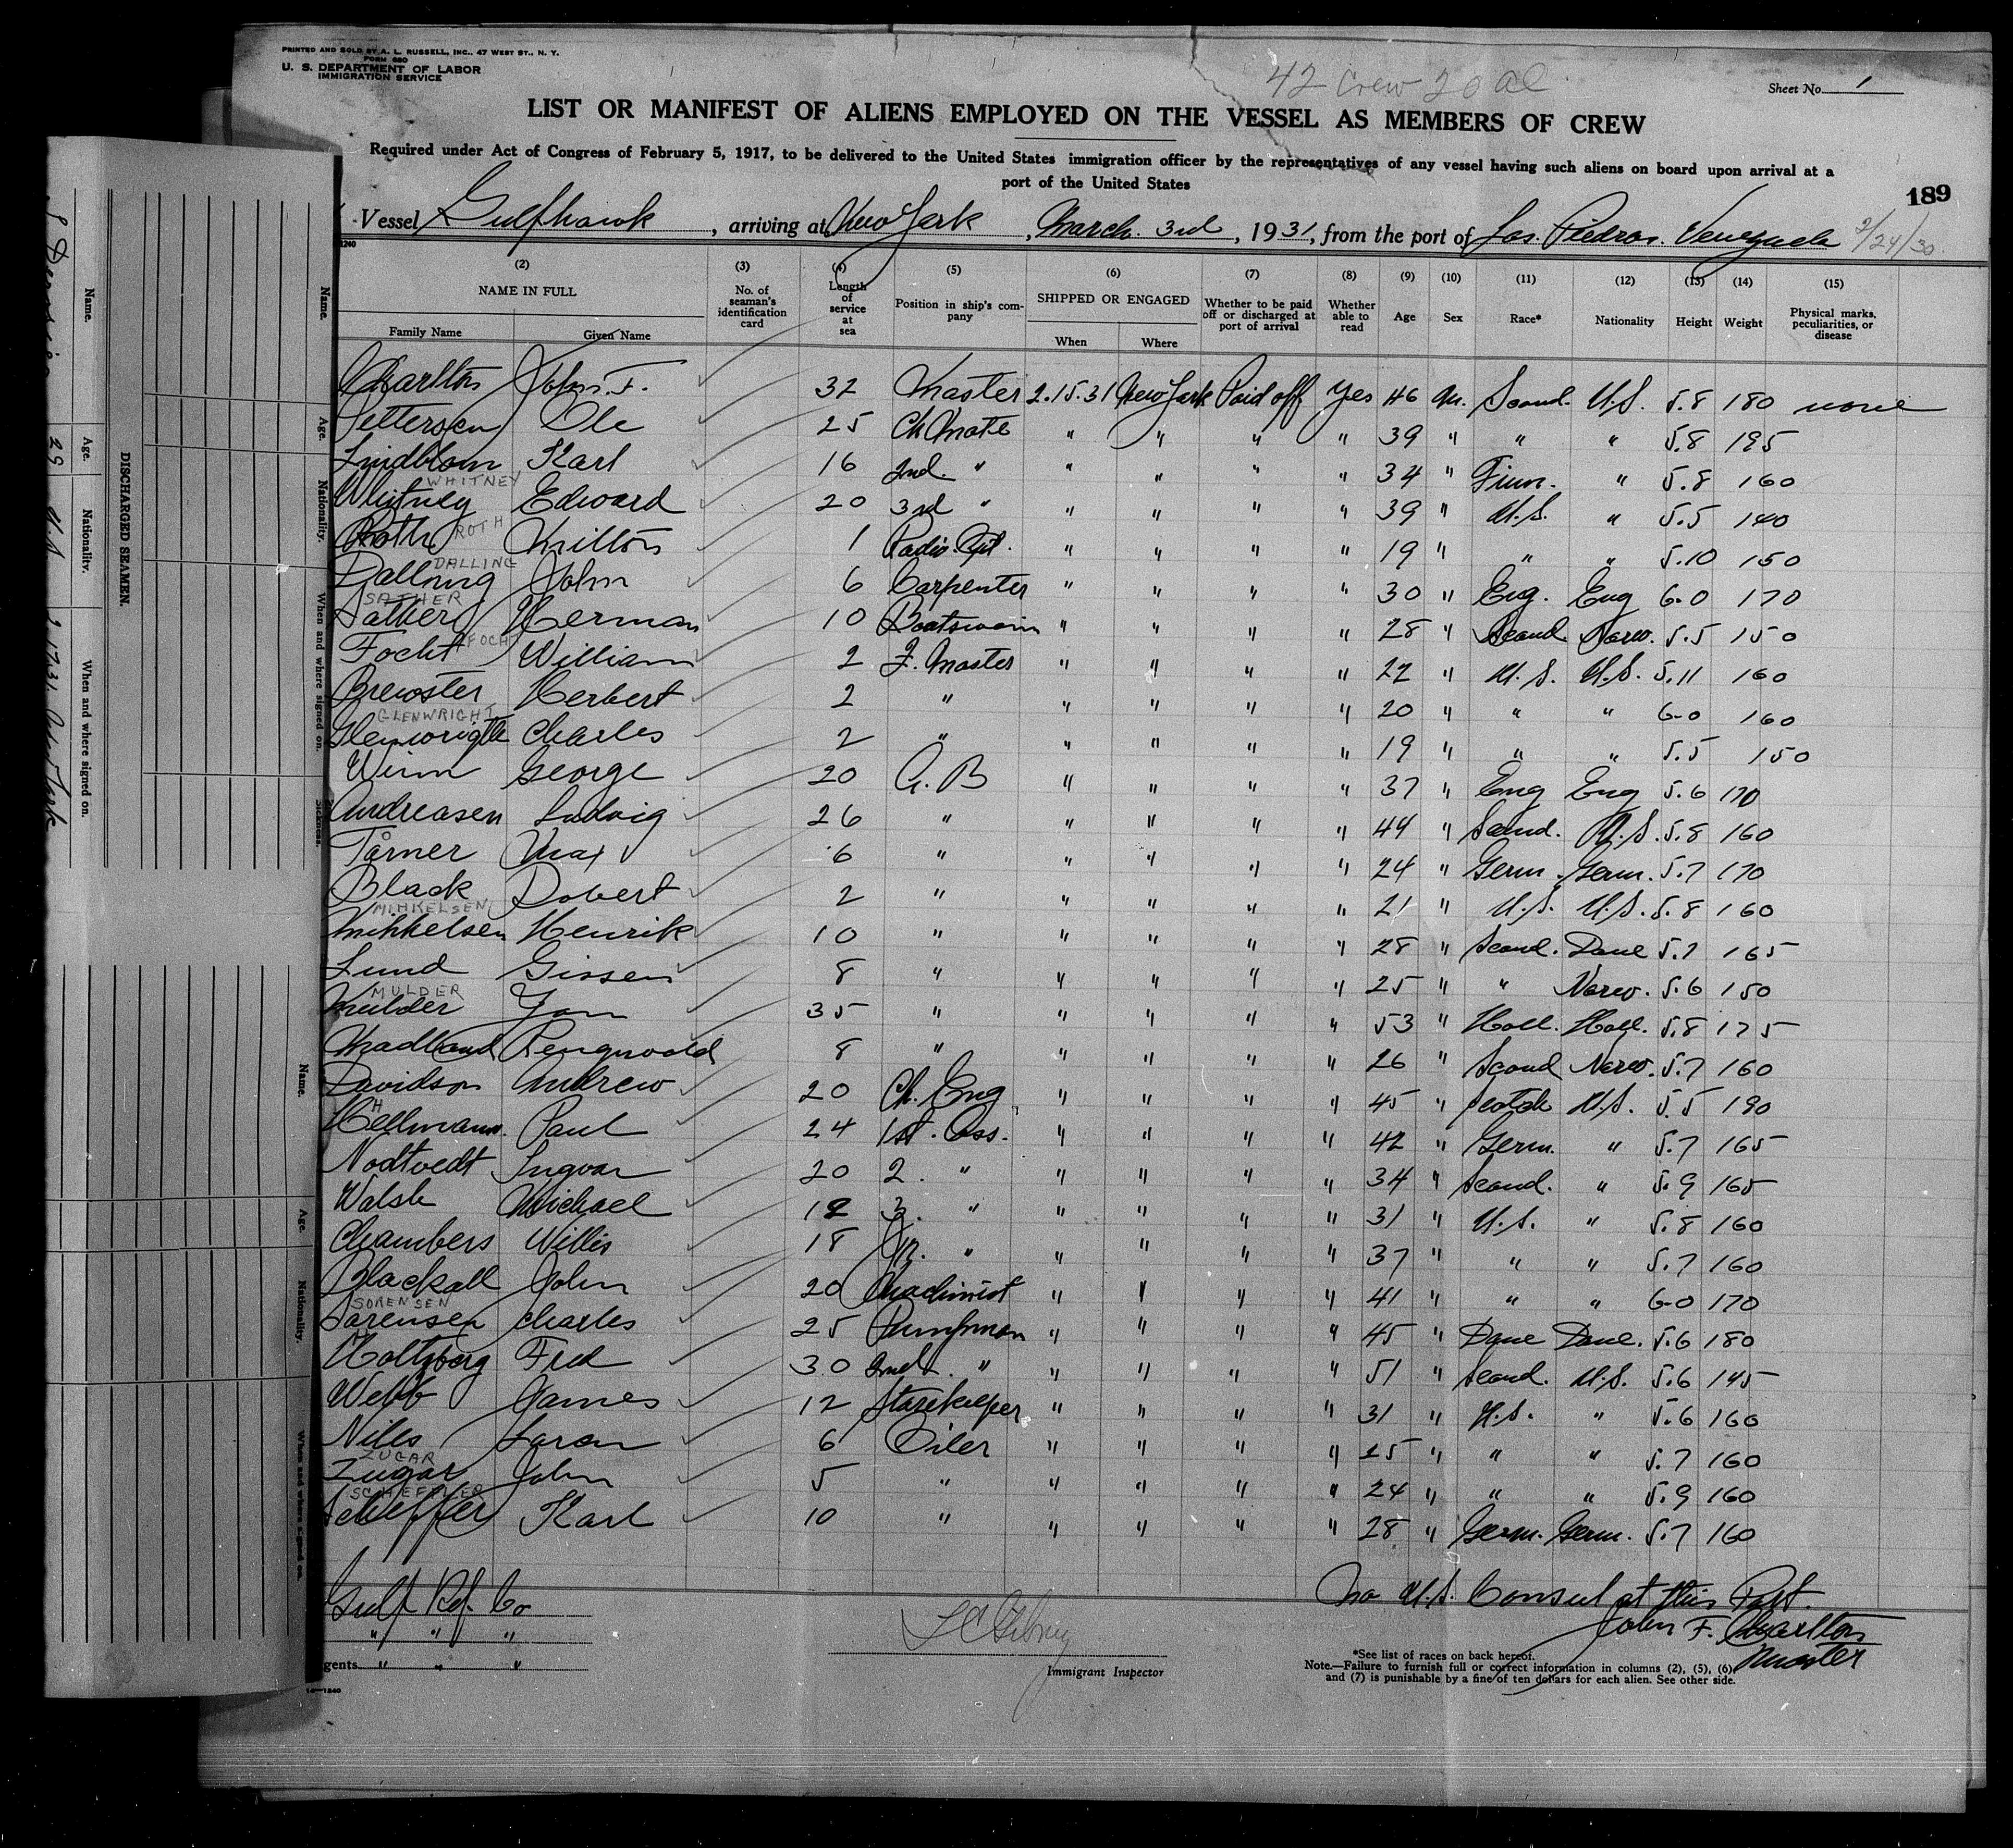 PRINTED AND SOLD BY A. L. RUSSELL, INC., 47 WEST ST., N. Y.
FORM 680
U. S. DEPARTMENT OF LABOR
IMMIGRATION SERVICE
42 Crew 20 al
Sheet No. 1
LIST OR MANIFEST OF ALIENS EMPLOYED ON THE VESSEL AS MEMBERS OF CREW
Required under Act of Congress of February 5, 1917, to be delivered to the United States immigration officer by the representatives of any vessel having such aliens on board upon arrival at a
port of the United States
189
Vessel Gulfhawk, arriving at New York, March 3rd, 1931, from the port of Las Piedras. Venezuela 2/24/30
1240
(2) (3) (4) (5) (6) (7) (8) (9) (10) (11) (12) (13) (14) (15)
NAME IN FULL No. of seaman's identification card Length of service at sea Position in ship's company SHIPPED OR ENGAGED Whether to be paid off or discharged at port of arrival Whether able to read Age Sex Race* Nationality Height Weight Physical marks, peculiarities, or disease
Family Name Given Name When Where
Charlton John. F. 32 Master 2.15.31 New York Paid off Yes 46 M. Scand. U.S. 5.8 180 none
Pettersen Ole 25 Ch Mate " " " " 39 " " " 5.8 195
Lindblom Karl 16 2nd. " " " " " 34 " Finn. " 5.8 160
WHITNEY
Whitney Edward 20 3rd " " " " " 39 " U.S. " 5.5 140
Roth ROTH Milton 1 Radio. Opt. " " " " 19 " " " 5.10 150
DALLING
Dalling John 6 Carpenter " " " " 30 " Eng. Eng 6-0 170
SATHER
Sather Herman 10 Boatswain " " " " 28 " Scand. Norw. 5.5 150
Focht FOCHT William 2 Z. Master " " " " 22 " U.S. U.S. 5.11 160
Brewster Herbert 2 " " " " " 20 " " " 6-0 160
GLENWRIGHT
Charles 2 " " " " " 19 " " " 5.5 150
Winn George 20 A.B " " " " 37 " Eng Eng 5.6 170
Andreasen Ludvig 26 " " " " " 44 " Scand. U.S. 5.8 160
Tårner Max 6 " " " " " 24 " Germ. Germ. 5.7 170
Black Robert 2 " " " " " 21 " U.S. U.S. 5.8 160
MIHKELSEN
Mihkelsen Henrik 10 " " " " " 28 " Scand. Dane 5.7 165
Lund 8 " " " " " 25 " " Norw. 5.6 150
MULDER
Mulder Jan 35 " " " " " 53 " Holl. Holl. 5.8 175
8 " " " " " 26 " Scand Norw. 5.7 160
Davidson Andrew 20 Ch. Eng " " " " 45 " Scotch U.S. 5.5 190
H
Hellmann. Paul 24 1st. Ass. " " " " 42 " Germ. " 5.7 165
Nodtvedt Ingvar 20 2. " " " " " 34 " Scand. " 5.9 165
Walsh Michael 12 3. " " " " " 31 " U.S. " 5.8 160
Chambers Willis 18 Jr. " " " " " 37 " " " 5.7 160
Blackall John 20 Machinist " " " " 41 " " " 6-0 170
SORENSEN
Sorensen Charles 25 Pumpman " " " " 45 " Dane Dane. 5.6 180
Holtzberg Fred 30 2nd. " " " " " 51 " Scand. U.S. 5.6 145
Webb James 12 Storekeeper " " " " 31 " U.S. " 5.6 160
Nills Laron 6 Oiler " " " " 25 " " " 5.7 160
ZUGAR
Zugar John 5 " " " " " 24 " " " 5.9 160
SCHEFFLER
Karl 10 " " " " " 28 " Germ. Germ. 5.7 160
Gulf Rf. Co
" " "
gents " " "
14—1240
Immigrant Inspector
No U.S. Consul at this Port.
John F. Charlton
Master
*See list of races on back hereof.
Note.—Failure to furnish full or correct information in columns (2), (5), (6),
and (7) is punishable by a fine of ten dollars for each alien. See other side.
DISCHARGED SEAMEN.
Name. Age. Nationality. When and where signed on.
29 U.S. 2.17.31. New York
Name. Age. Nationality. When and where signed on. Sickness.
Name. Age. Nationality. When and where signed on.